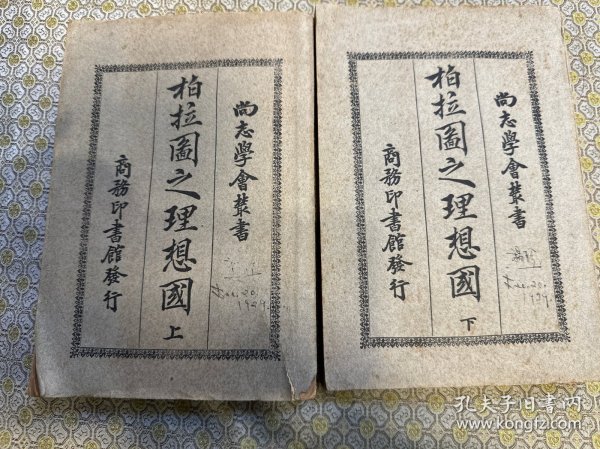 尚志學會叢書
柏拉圖之理想國
上
商務印書館發行
Dec. 20. 1929.
尚志學會叢書
柏拉圖之理想國
下
商務印書館發行
Dec. 20. 1929.
孔夫子旧书网
www.kongfz.com